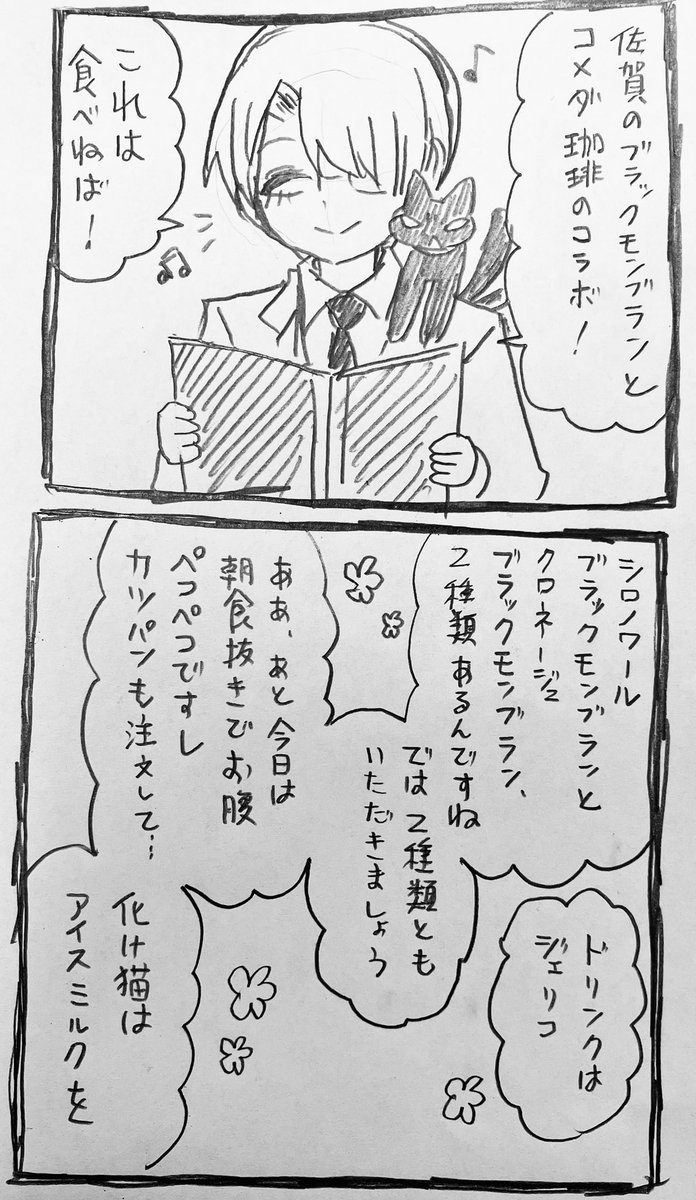 佐賀のブラックモンブランと
コメダ珈琲のコラボ！
これは
食べねば！
シロノワール
ブラックモンブランと
クロネージュ
ブラックモンブラン、
2種類あるんですね
では2種類とも
いただきましょう
ああ、あと今日は
朝食抜きでお腹
ペコペコですし
カツパンも注文して…
ドリンクは
ジェリコ
化け猫は
アイスミルクを